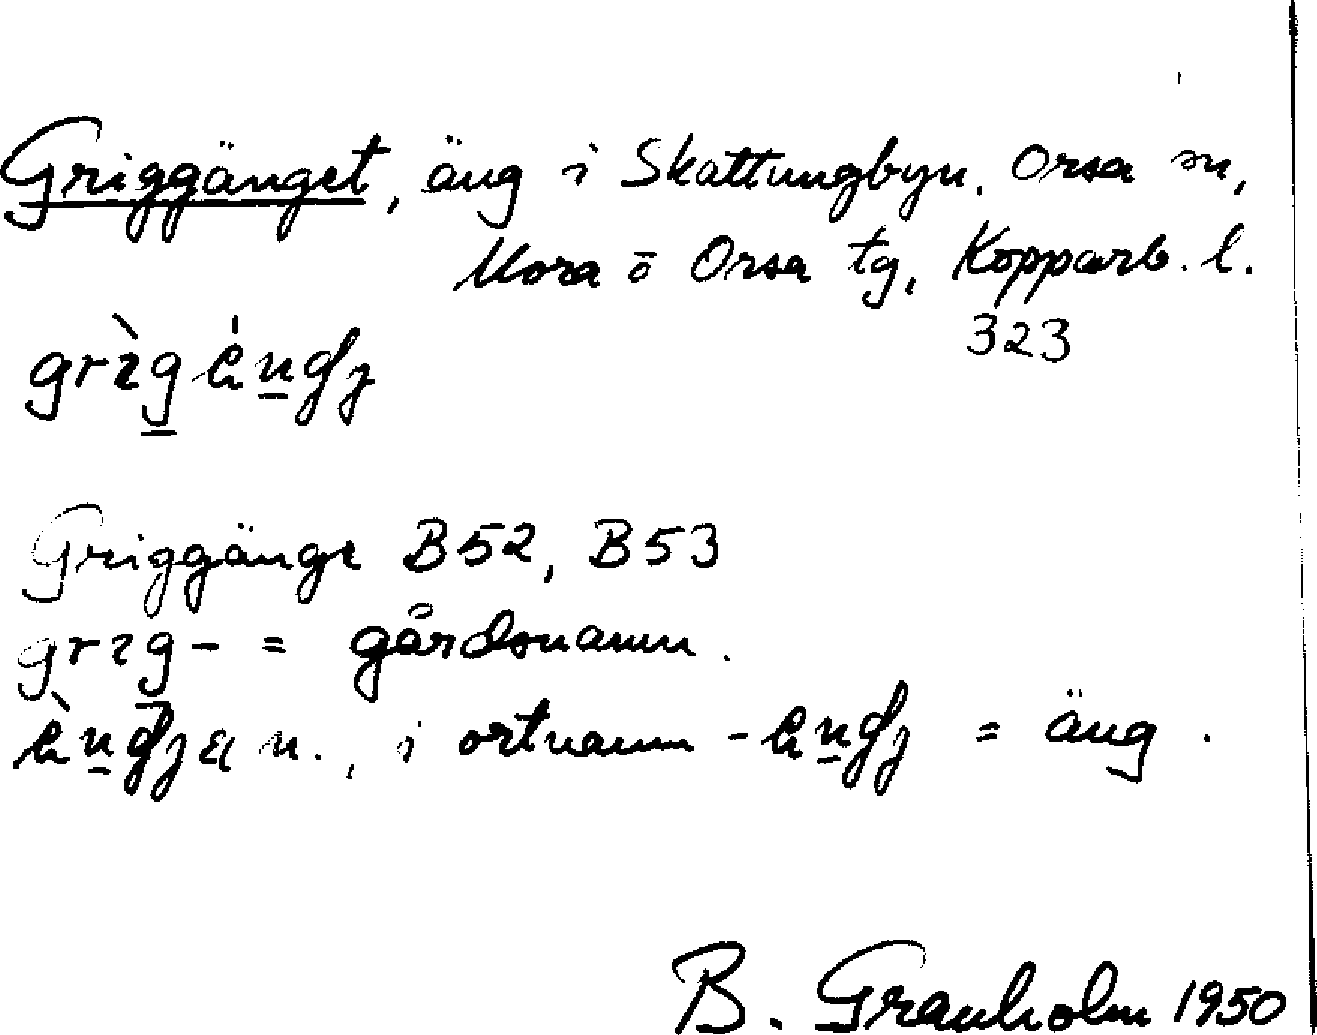 Griggänget, äng i Skattungbyn. Orsa sn,
Mora o Orsa tg, Kopparb. l.
323
Griggänge B52, B53
= gårdsnamn.
n., i ortnamn = äng.
B. Granholm 1950